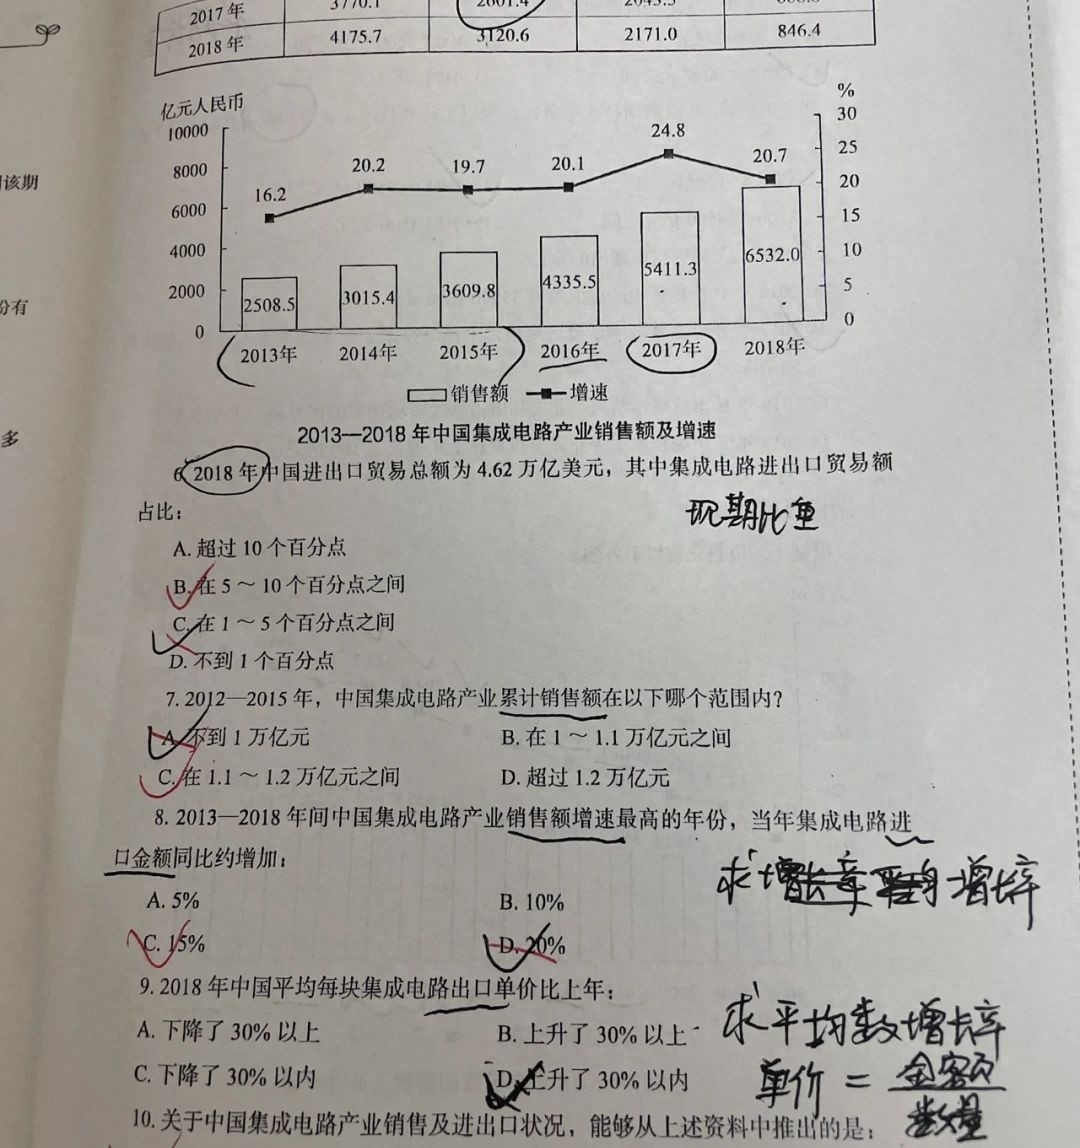 2017年 3770.1 2601.4
2018年 4175.7 3120.6 2171.0 846.4
亿元人民币 %
10000 30
8000 25
6000 20
4000 15
2000 10
0 5
0
16.2 20.2 19.7 20.1 24.8 20.7
2508.5 3015.4 3609.8 4335.5 5411.3 6532.0
2013年 2014年 2015年 2016年 2017年 2018年
销售额 增速
2013—2018年中国集成电路产业销售额及增速
6. 2018年中国进出口贸易总额为4.62万亿美元，其中集成电路进出口贸易额
占比：
现期比重
A. 超过10个百分点
B. 在5～10个百分点之间
C. 在1～5个百分点之间
D. 不到1个百分点
7. 2012—2015年，中国集成电路产业累计销售额在以下哪个范围内？
A. 不到1万亿元 B. 在1～1.1万亿元之间
C. 在1.1～1.2万亿元之间 D. 超过1.2万亿元
8. 2013—2018年间中国集成电路产业销售额增速最高的年份，当年集成电路进
口金额同比约增加：
求增长率 平均增长率
A. 5% B. 10%
C. 15% D. 20%
9. 2018年中国平均每块集成电路出口单价比上年：
A. 下降了30%以上 B. 上升了30%以上
求平均数增长率
C. 下降了30%以内 D. 上升了30%以内
单价 = 金额
数量
10. 关于中国集成电路产业销售及进出口状况，能够从上述资料中推出的是：
该期
份有
多